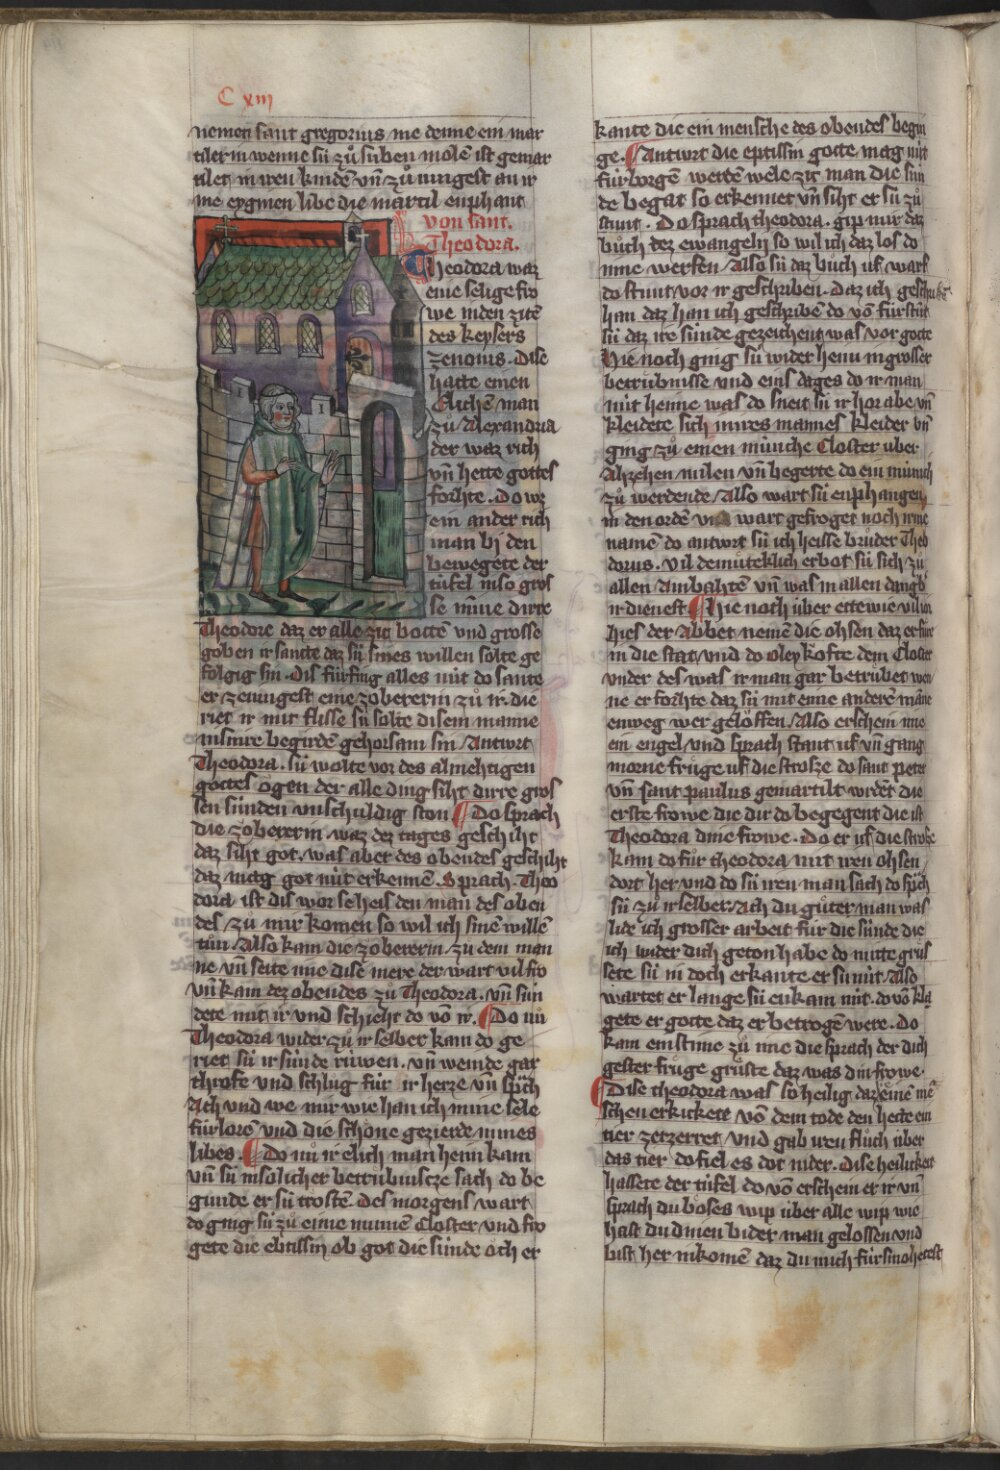 C xiij
nemen sant gregorius me denne ein mar
tilerin wenne sü zů süben molē ist gemar
tilet in iren kindē vn̄ zů iungest an ir
me eygmen libe die martil enphant
von sant.
Theodora.
Theodora waz
eine selige fro
we in den zitē
des keysers
zenonis. Dise
hatte einen
Elichē man
zů Alexandria
der waz rich
vn̄ hette gottes
forhte. Do wz
ein ander rich
man bi den
bewegete der
tüfel in so gros
se minne dirre
Theodore daz er alle zit bottē vnd grosse
goben ir sante daz sü sines willen solte ge
folgig sin. Dis fürfing alles nüt do sante
er zeiungest eine zobererin zů ir. die
riet ir mit flisse sü solte disem manne
in sinre begirdē gehorsam sin Antwrt
Theodora. sü wolte vor des almehtigen
gottes ogen der alle ding siht dirre gros
sen sünden vnschuldig ston Do sprach
die zobererin waz dez tages geschiht
daz siht got. was aber des obendes geschiht
daz mag got nüt erkennē. Sprach. Theo
dora ist dis wor so heis den man des oben
des zu mir komen so wil ich sinē willē
tůn Also kam die zobererin zu dem man
ne vn̄ seite ime disē mere der wart vil fro
vn̄ kam dez obendes zů Theodora. vn̄ sün
dete mit ir vnd schieht do vō ir. Do nů
Theodora wider zů ir selber kam do ge
riet sü ir sünde rüwen. vn̄ weinde gar
throte vnd schlug für ir herze vn̄ spch
Ach vnd we mir wie han ich mine sele
fürlorē vnd die schöne gezierde mines
libes. Do nů ir elich man heim kam
vn̄ sü in solicher betrübnisze sach do be
gunde er sü trostē. Des morgens wart
do ging sü zů eime nunnē Closter vnd fro
gete die ebtissin ob got die sünde och er
kante die ein mensche des obendes begin
ge. Antwrt die eptissin gotte mag nüt
fürborgē werdē wele zit man die sün
de begat so erkennet vn̄ siht er sü zů
stunt. Do sprach theodora. gip mir daz
bůch dez ewangelij so wil ich daz los do
inne werfen Also sü daz bůch uf warf
do stunt vor ir geschriben. Daz ich geschribē
han daz han ich geschribē do vō fürstůt
sü daz ire sünde gezeichent was vor gotte
Hie noch ging sü wider heim in grosser
betrübnisse vnd eins dages do ir man
nüt heime was do sneit sü ir hor abe vn̄
kleidete sich in ires mannes kleider vn̄
ging zů einen münche Closter über
Ahzehen milen vn̄ begerte do ein münich
zů werdende Also wart sü enphangen
in den ordē vnd wart gefroget noch irme
namē do antwrt sü ich heisse brůder Theo
dorus. vil demůteklich erbot sü sich zů
allen Ambahtē vn̄ was in allen dangb
ir dienest Hie noch über ettewie vil ior
hies der Abbet nemē die ohsen daz er füre
in die stat vnd do oley kofte dem Closter
vnder des was ir man gar betrübet wen
ne er forhte daz sü mit eime anderē māne
enweg wer geloffen Also erschein ime
ein engel vnd sprach stant uf vn̄ gang
morne früge uf die strosze do sant peter
vn̄ sant paulus gemartilt wrdēt die
erste frowe die dir do begegent die ist
Theodora dine frowe. Do er uf die strosze
kam do fůr theodora mit iren ohsen
dort her vnd do sü iren man sach do spch
sü zu ir selber Ach du gůter man was
lide ich grosser arbeit für die sünde die
ich wider dich geton habe do mitte grus
sete sü in doch erkante er sü nüt. Also
wartet er lange sü enkam nüt. do vō kla
gete er gotte daz er betrogē were. Do
kam ein stime zů ime die sprach der dich
gester früge grůste daz was din frowe.
Dise theodora was so heilig daz einē mē
schen erkickete vō dem tode den hette ein
tier zerzerret vnd gab iren flůch über
das tier do fiel es dot nider. Dise heilikeit
hassete der tüfel do vō erschein er ir vn̄
sprach du böses wip über alle wip wie
hast du dinen bider man gelossen vnd
bist her in komē daz du mich fürsmohetest